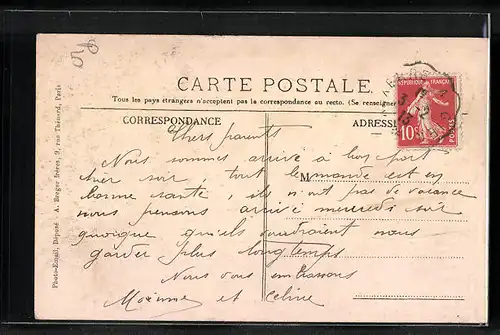 CARTE POSTALE.
Tous les pays étrangers n'acceptent pas la correspondance au recto. (Se renseigner
CORRESPONDANCE
ADRESSE
RÉPUBLIQUE FRANÇAI
10c
POSTES
Photo-Email. Déposé. - A. Berger frères, 9, rue Thénard, Paris
Chers parents
Nous sommes arrivé à bon port
hier soir, tout le monde est en
M
bonne santé, ils n'ont pas de vacance
nous pensons arrivé mercredi soir
quoique qu'ils voudraient nous
garder plus longtemps
Nous vous embrassons
et Celine